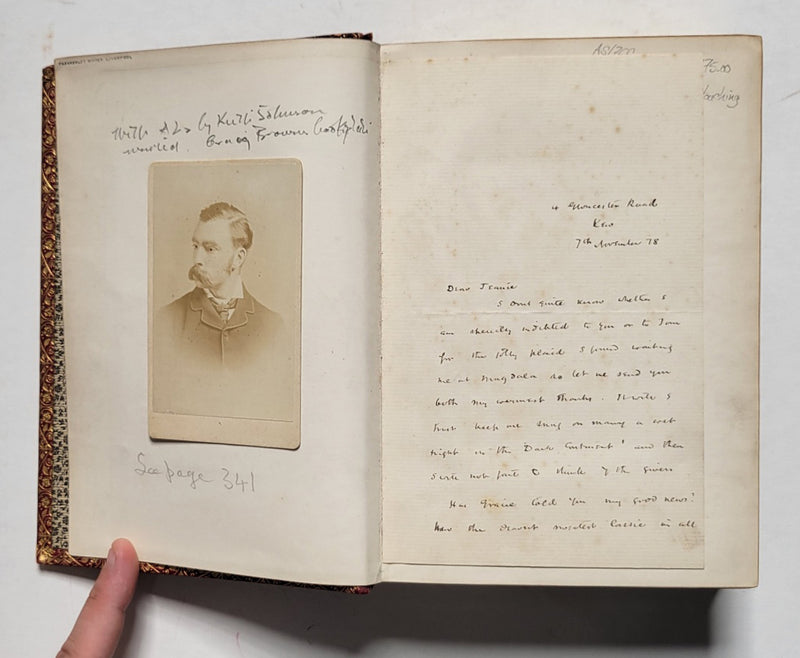 With ALS by Keith Johnson
Craig Brown bookplate
See page 341
75.00
4 Gloucester Road
Kew
7th November 78
Dear Jeanie
I don't quite know whether I
am indebted to you or to Tom
for the jolly plaid I found waiting
me at Magdala so let me send you
both my warmest thanks. It will I
trust keep me snug on many a cold
night in the "Dark Continent" and then
I will not fail to think of the givers
Has Gracie told you my good news?
How the dearest lassie in all